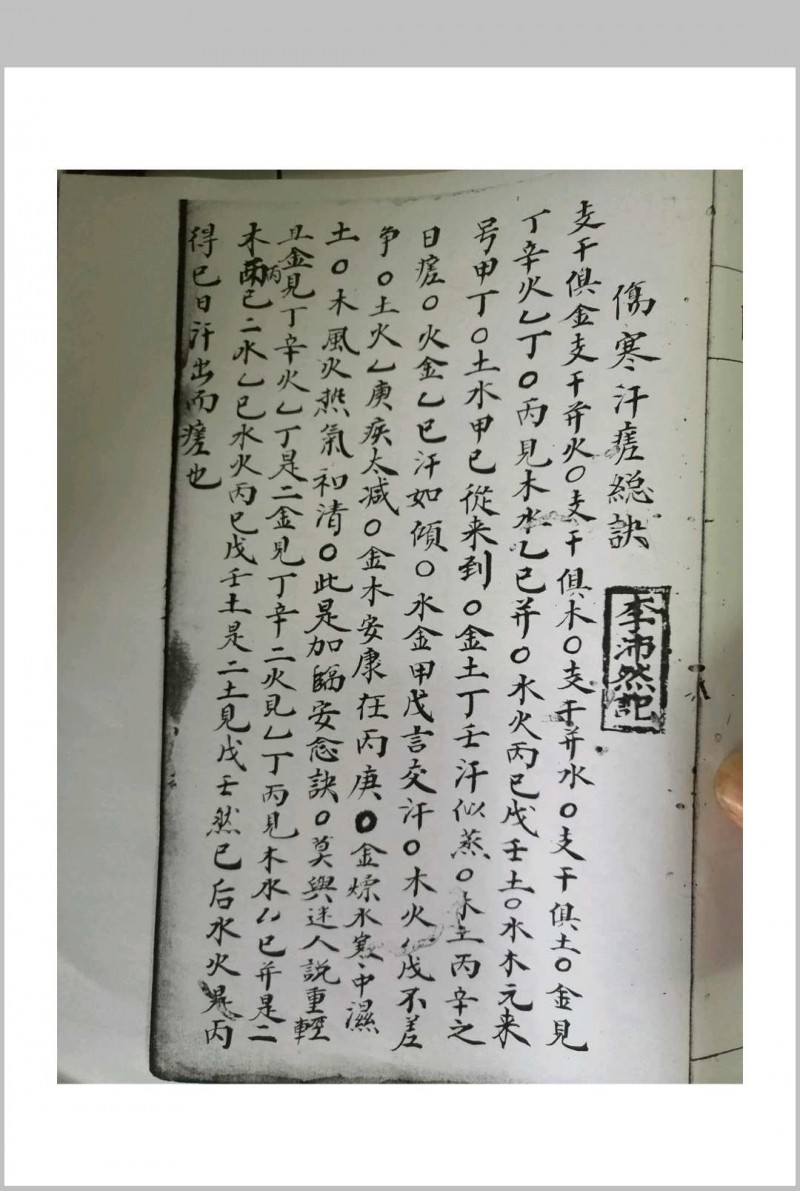 傷寒汗瘥総訣
李沛然記
支干俱金支干并火〇支干俱木〇支干并水〇支干俱土〇金見
丁辛火乙丁〇丙見木水乙巳并〇水火丙巳戊壬土〇水木元来
号甲丁〇土水甲巳從来到〇金土丁壬汗似蒸〇木土丙辛之
日瘥〇火金乙巳汗如傾〇水金甲戊言交汗〇木火戊不差
争〇土火乙庚疾太减〇金木安康在丙庚〇金燥水寒中濕
土〇木風火熱氣和清〇此是加臨安愈訣〇莫與迷人説重輕
丑金見丁辛火乙丁是二金見丁辛二火見乙丁丙見木水乙巳并是二
木丙巳二水乙巳水火丙巳戊壬土是二土見戊壬然巳后水火見丙
得巳日汗出而瘥也